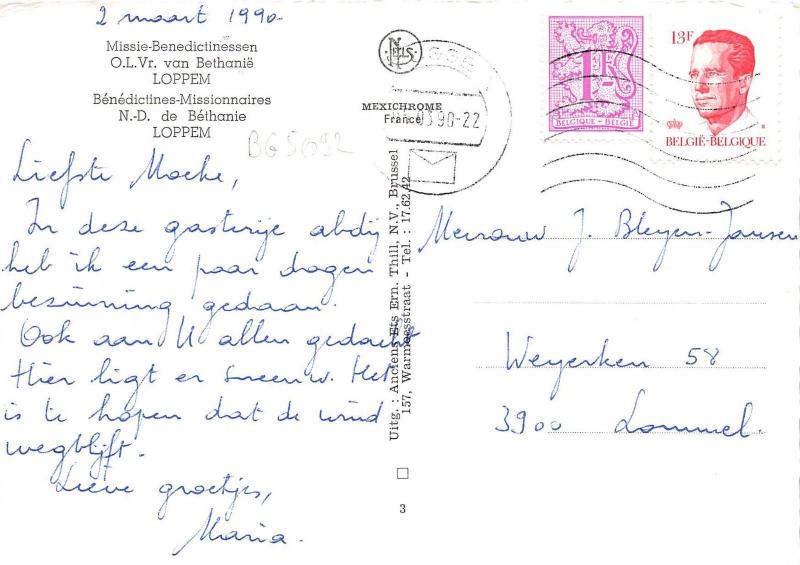 2 maart 1990
Missie-Benedictinessen
O.L.Vr. van Bethanië
LOPPEM
Bénédictines-Missionnaires
N.-D. de Béthanie
LOPPEM
BG5692
Liefste Moeke,
In deze gastvrije abdij
heb ik een paar dagen
bezinning gedaan.
Ook aan U allen gedacht
Hier ligt er sneeuw. Het
is te hopen dat de wind
wegblijft.
Lieve groetjes,
Maria.
MEXICHROME
France
03.90-22
Uitg. : Anciens Ets Ern. Thill, N.V., Brussel
157, Warmoesstraat - Tel. : 17.62.42
3
1F
BELGIQUE - BELGIË
13F
BELGIË-BELGIQUE
Mevrouw J. Bleyen-Jansen
Weyerken 58
3900 Lommel.